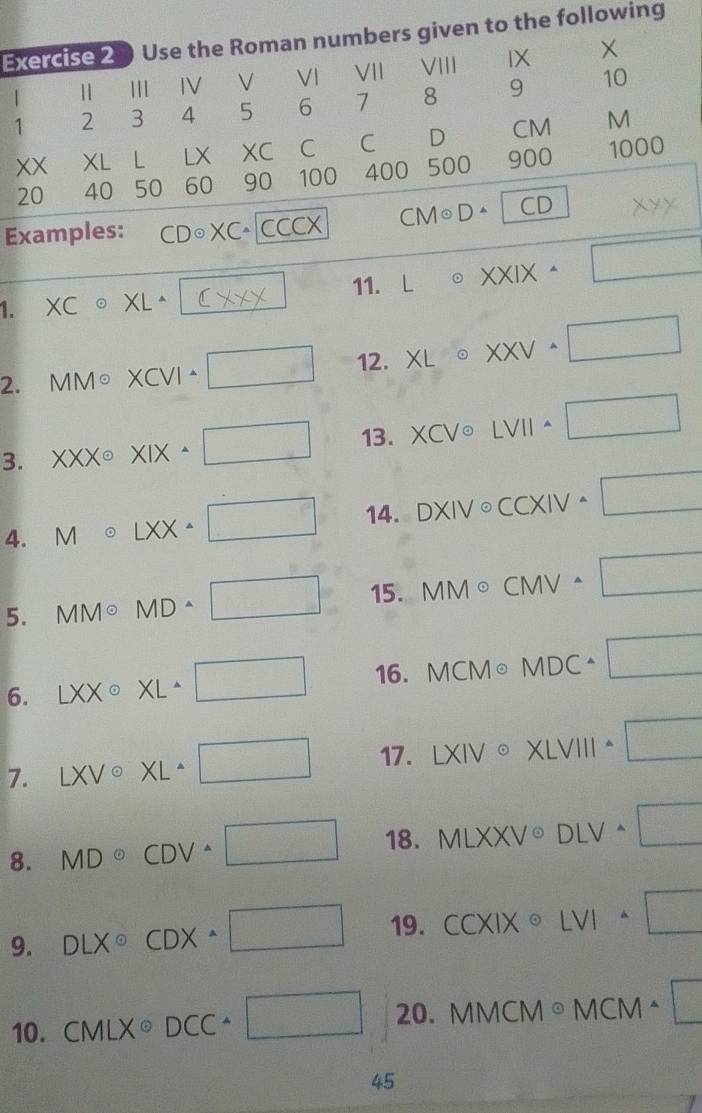 Exercise 2 Use the Roman numbers given to the following
I II III IV V VI VII VIII IX X
1 2 3 4 5 6 7 8 9 10
XX XL L LX XC C C D CM M
20 40 50 60 90 100 400 500 900 1000
Examples: CD⊙XC▲ CCCX CM⊙D▲ CD XYX
1. XC ⊙ XL▲ CXXX 11. L ⊙ XXIX ▲
2. MM⊙ XCVI▲ 12. XL ⊙ XXV ▲
3. XXX⊙ XIX ▲ 13. XCV⊙ LVII ▲
4. M ⊙ LXX▲ 14. DXIV⊙CCXIV▲
5. MM⊙ MD▲ 15. MM⊙ CMV ▲
6. LXX⊙ XL▲ 16. MCM⊙ MDC▲
7. LXV⊙ XL▲ 17. LXIV ⊙ XLVIII▲
8. MD ⊙ CDV▲ 18. MLXXV⊙ DLV ▲
9. DLX⊙ CDX ▲ 19. CCXIX ⊙ LVI ▲
10. CMLX⊙ DCC▲ 20. MMCM⊙MCM▲
45